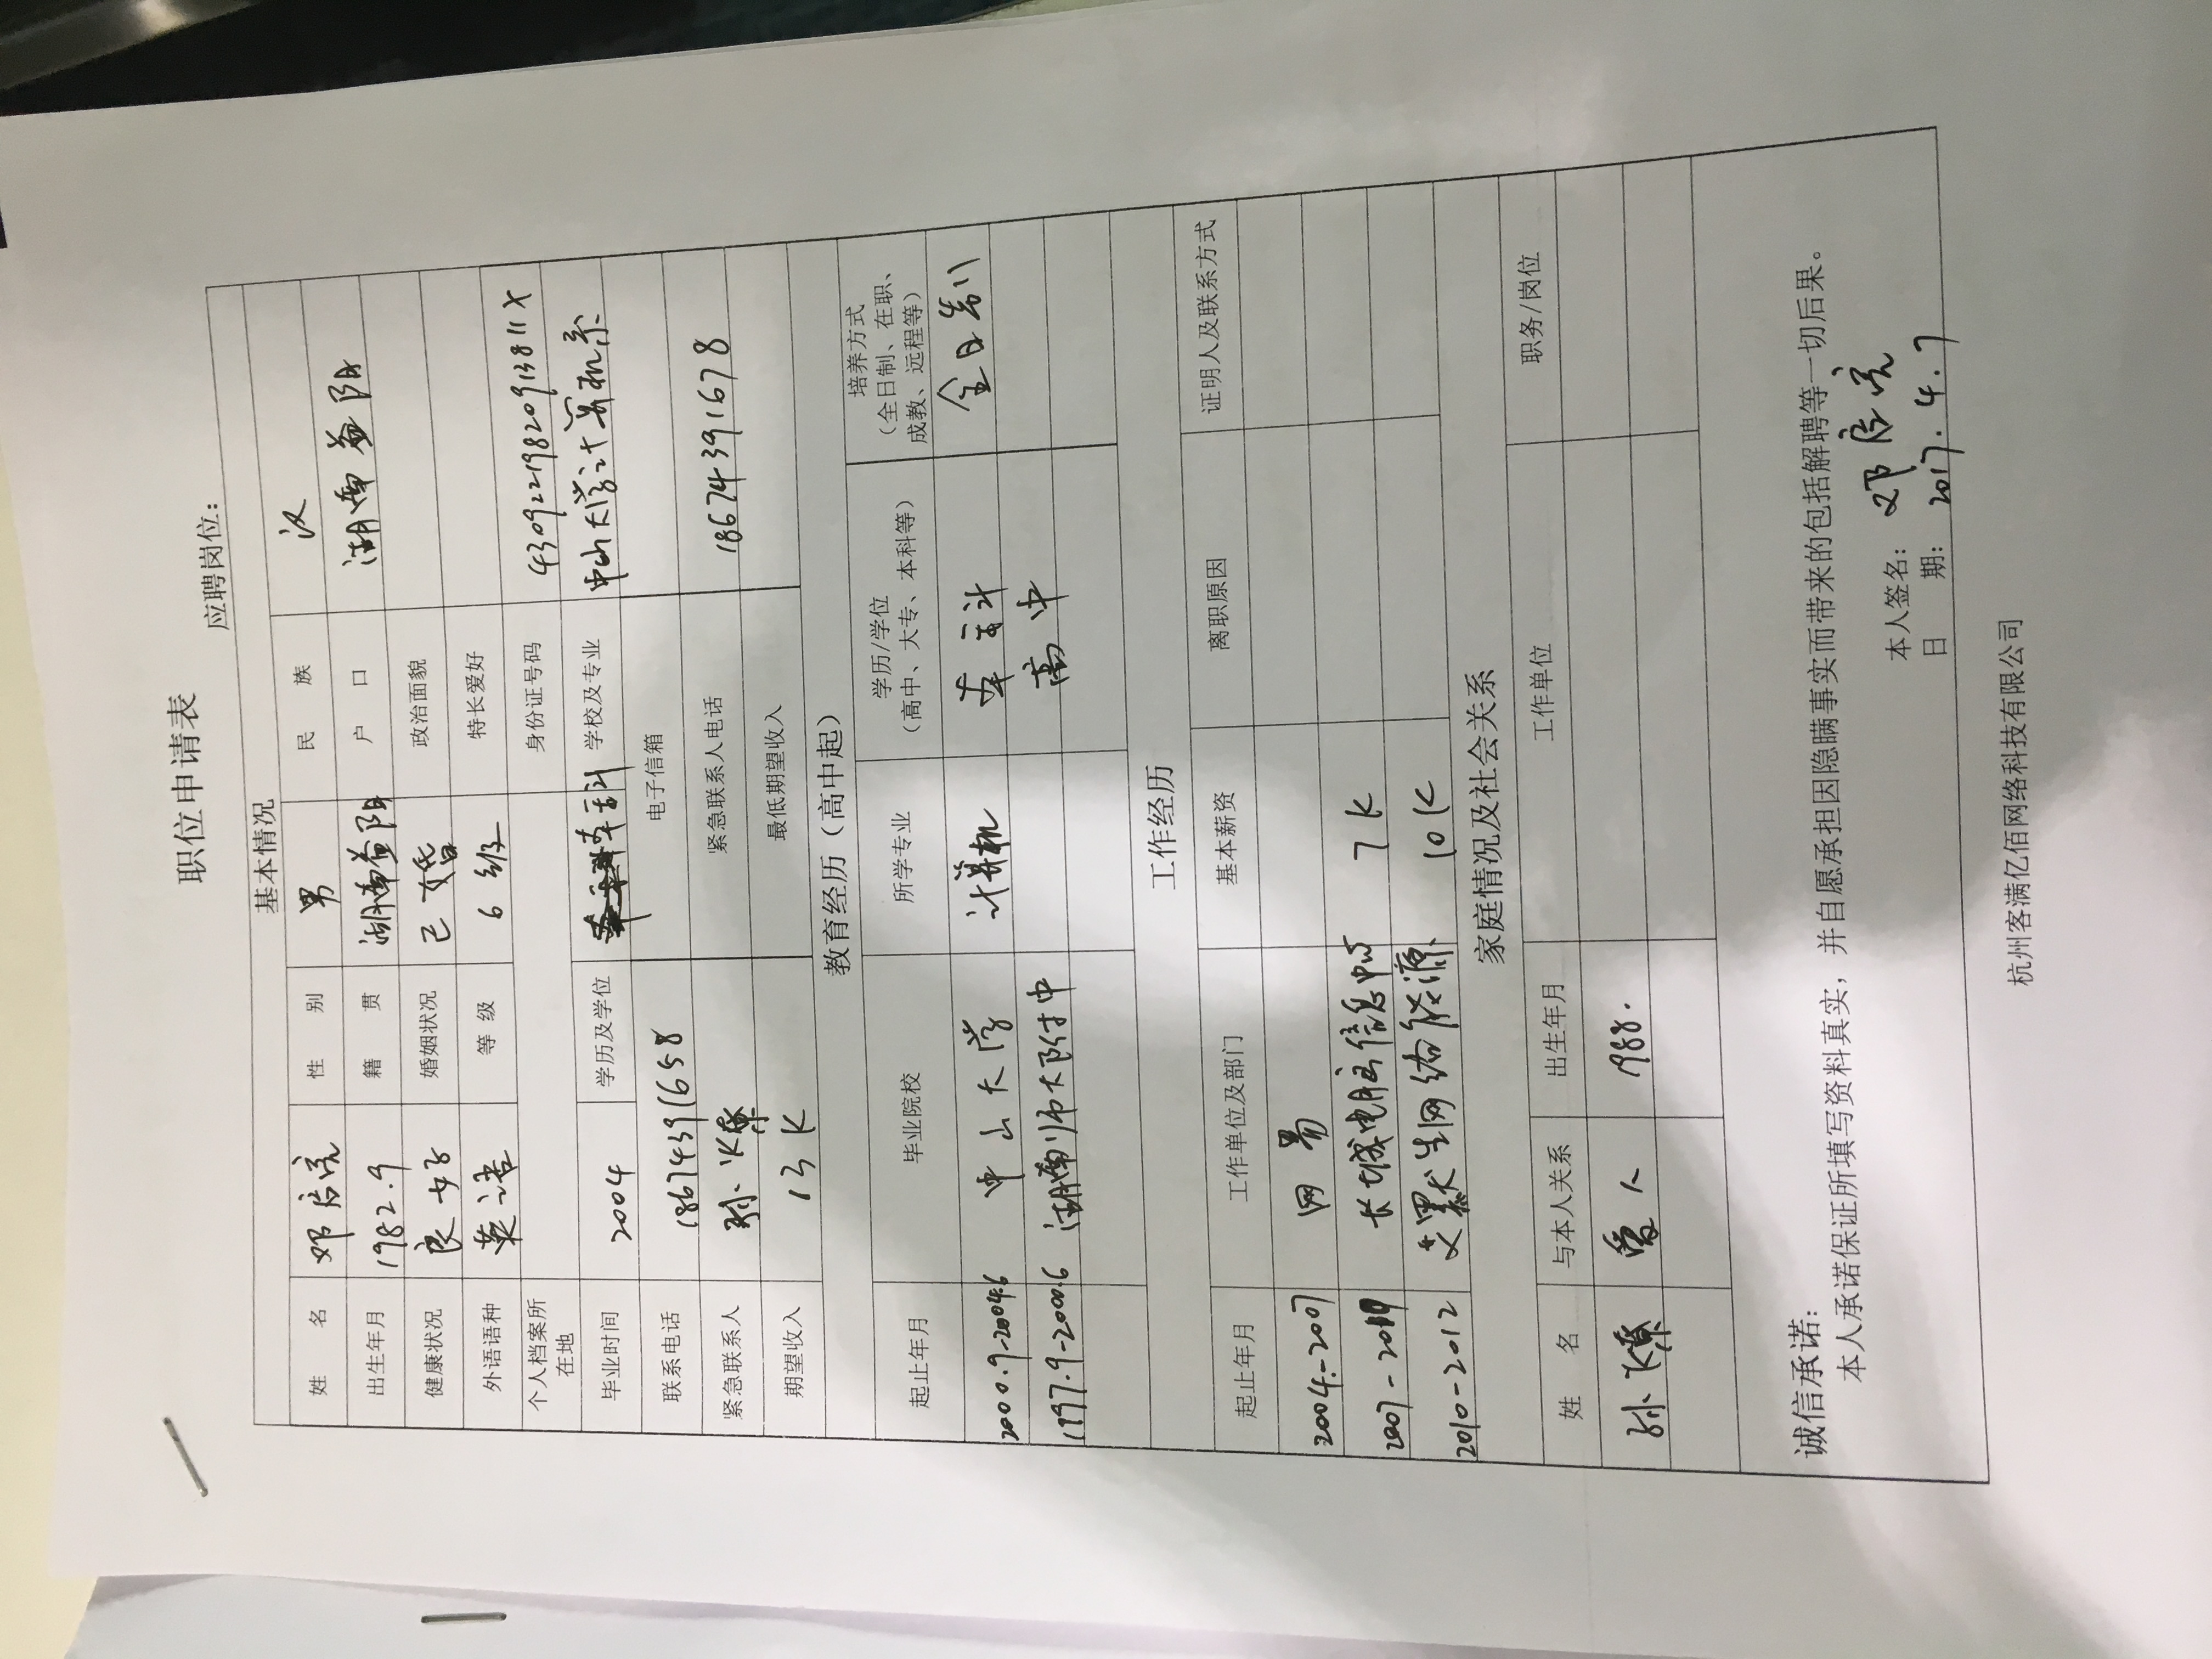 职位申请表
应聘岗位：
基本情况
姓 名 邓启亮 性 别 男 民 族 汉
出生年月 1982.9 籍 贯 湖南益阳 户 口 湖南益阳
健康状况 良好 婚姻状况 已婚 政治面貌
外语语种 英语 等 级 6级 特长爱好
个人档案所在地 身份证号码 43092219820913811X
毕业时间 2004 学历及学位 本科 学校及专业 中山大学计算机系
联系电话 18674391658 电子信箱
紧急联系人 孙燎 紧急联系人电话 18674391678
期望收入 13K 最低期望收入
教育经历（高中起）
起止年月 毕业院校 所学专业 学历/学位（高中、大专、本科等） 培养方式（全日制、在职、成教、远程等）
2000.9-2004.6 中山大学 计算机 本科 全日制
1997.9-2000.6 湖南师大附中 高中
工作经历
起止年月 工作单位及部门 基本薪资 离职原因 证明人及联系方式
2004.-2007 网易
2007- 长城电脑信息中心 7K
2010-2012 艾默生网络能源 10K
家庭情况及社会关系
姓 名 与本人关系 出生年月 工作单位 职务/岗位
孙燎 爱人 1988.
诚信承诺：
本人承诺保证所填写资料真实，并自愿承担因隐瞒事实而带来的包括解聘等一切后果。
本人签名： 邓启亮
日 期： 2017.4.7
杭州客满亿佰网络科技有限公司